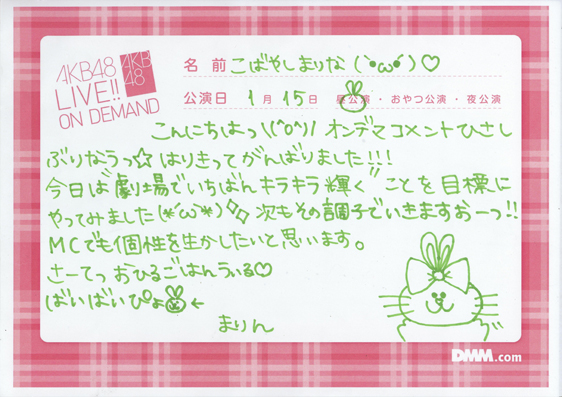 AKB48
LIVE!!
ON DEMAND
AKB
48
名前 こばやしまりな (`・ω・´)♡
公演日 1月15日 昼公演・おやつ公演・夜公演
こんにちはっ\(^o^)/ オンデマコメントひさし
ぶりなうっ☆ はりきってがんばりました!!!
今日は“劇場でいちばんキラキラ輝く”ことを目標に
やってみました(*´ω`*) 次もその調子でいきますおーっ!!
MCでも個性を生かしたいと思います。
さーてっ おひるごはんうぃる♡
ばいばいぴょ←
まりん
DMM.com